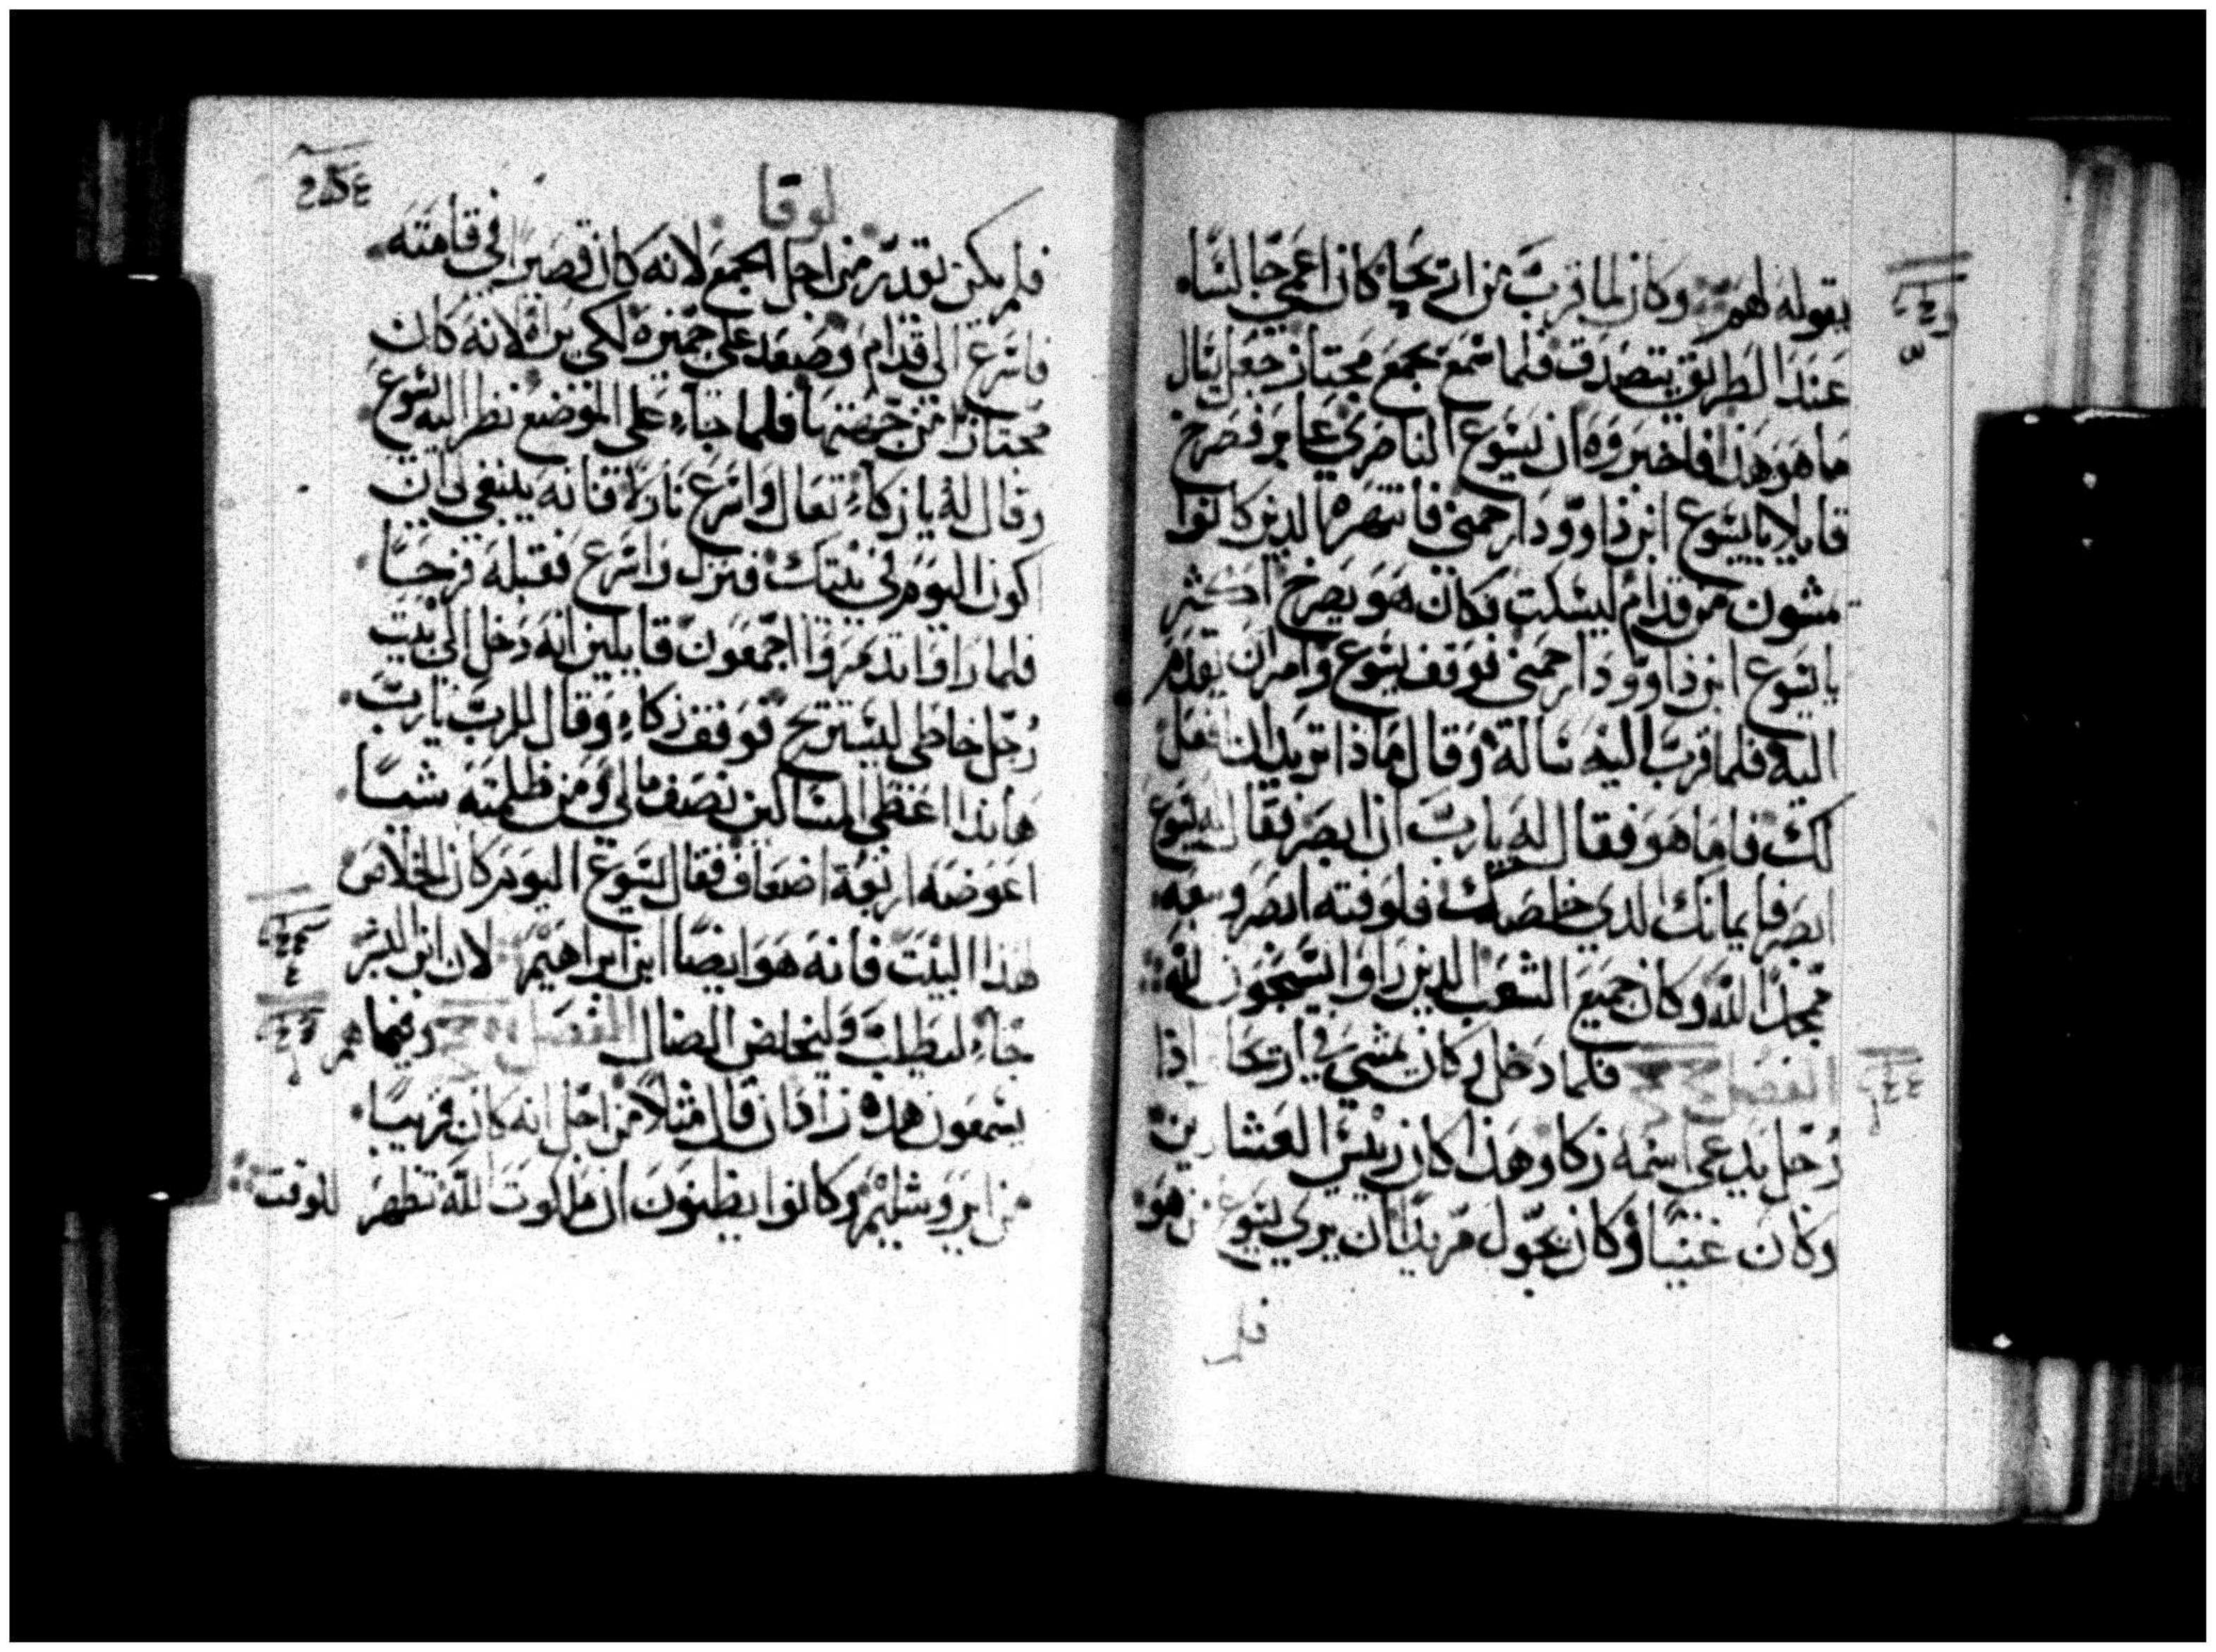 يقوله لهم وكان لما قرب من اتريحا كان اعمى جالسًا
عند الطريق يتصدق فلما سمع بجمع مجتاز جعل يسال
ما هو هذا فاخبروه ان يسوع الناصري عابر فصرخ
قايلا يا يسوع ابن داوود ارحمني فانتهره الدين كانوا
يمشون من قدام ليسكت وكان هو يصرخ اكثر
يا يسوع ابن داوود ارحمني فوقف يسوع وامر ان يقدم
اليه فلما قرب اليه ساله وقال ماذا تريد ان افعل
لك فاما هو فقال له يا رب ان ابصر فقال له يسوع
ابصر فايمانك الدي خلصك فلوقته ابصر وتبعه
ممجدًا لله وكان جميع الشعب الدين راوا يسبحون لله
الفصل فلما دخل وكان يمشي في اريحا اذا
رجل يدعى اسمه زكا وهذا كان رييس العشارين
وكان غنيًا وكان يجول مريدًا ان يرى يسوع من هو
فلم
لوقا
فلم يكن يقدر من اجل الجمع لانه كان قصيرًا في قامته
فاسرع الى قدام وصعد على جميزه لكي يراه لانه كان
مجتازًا من جهتها فلما جاء على الموضع نظر اليه يسوع
وقال له يا زكاء تعال واسرع نازلا فانه ينبغي ان
اكون اليوم في بيتك فنزل واسرع فقبله فرحًا
فلما راوا تدمروا اجمعون قايلين انه دخل الى بيت
رجل خاطي ليستريح فوقف زكاء وقال للرب يا رب
هانذا اعطي المساكين نصف مالي ومن ظلمته شيًا
اعوضه اربعة اضعاف فقال يسوع اليوم كان الخلاص
هذا البيت فانه هو ايضًا ابن ابراهيم لان ابن البشر
جاء ليطلب وليخلص الضال الفصل وفيما هم
يسمعون هده زاد ان قال مثلًا من اجل انه كان قريبًا
من ايروشليم وكانوا يظنون ان ملكوت الله تظهر للوقت